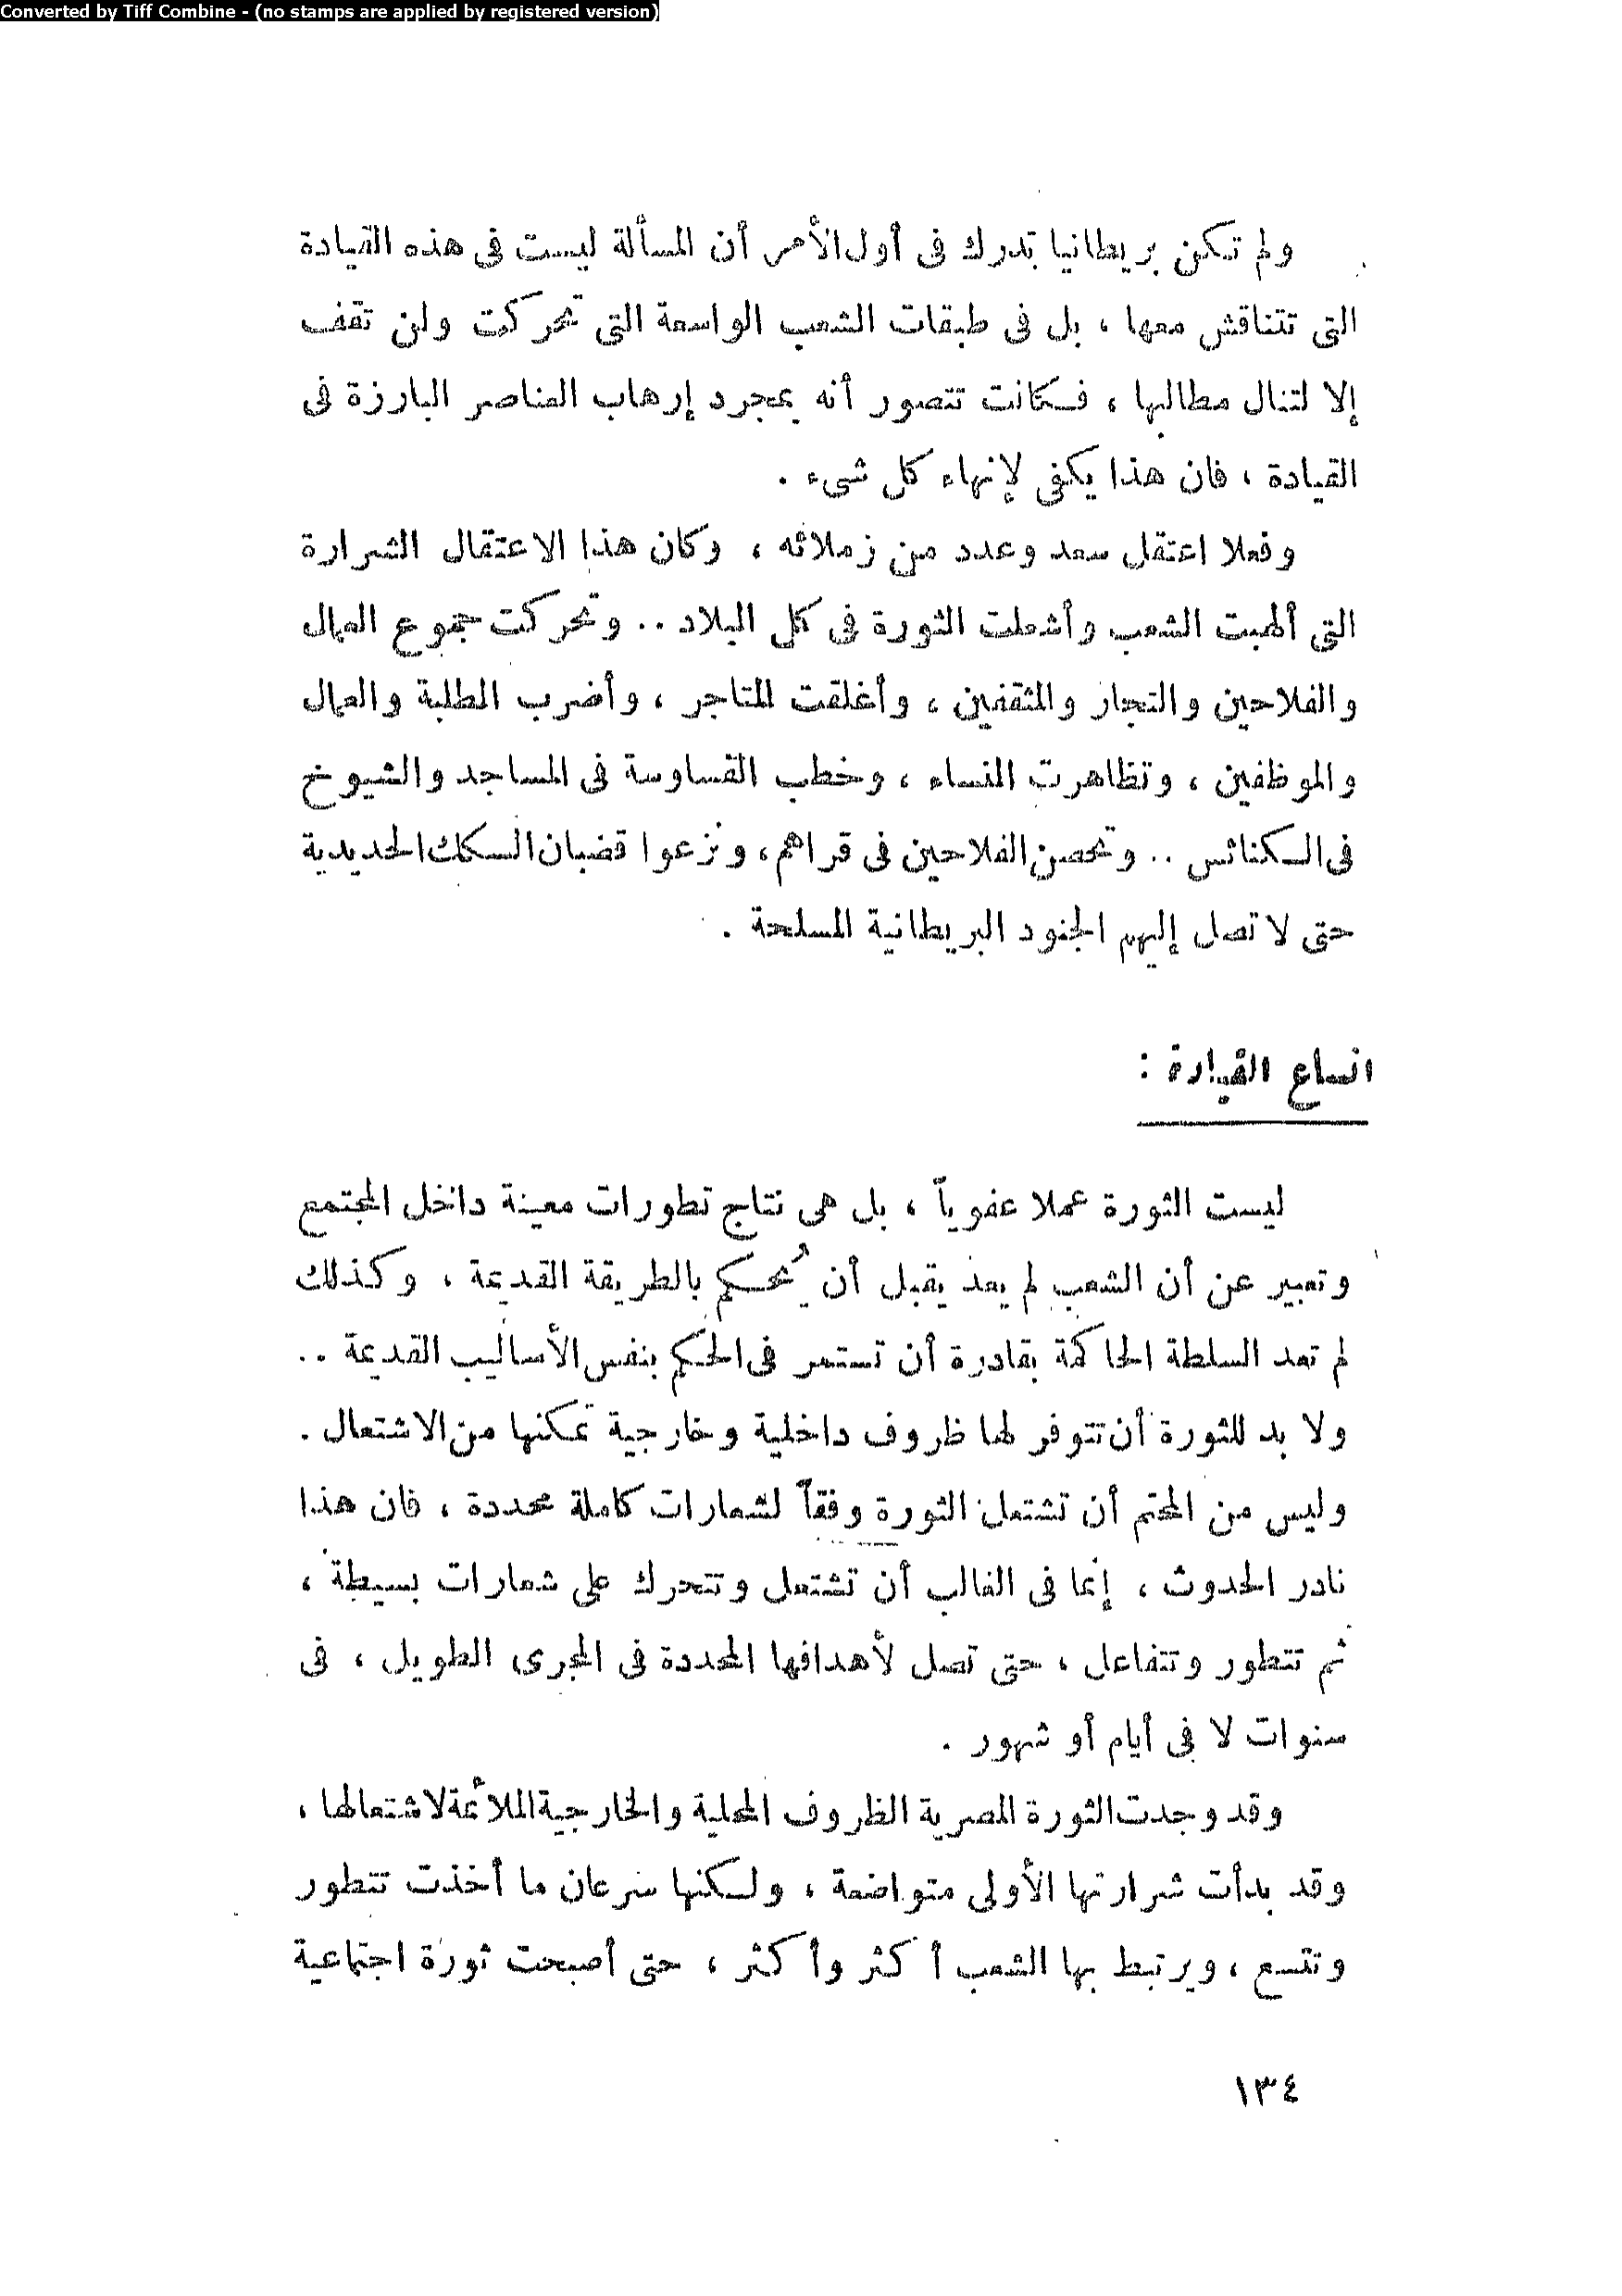 Converted by Tiff Combine - (no stamps are applied by registered version)
ولم تكن بريطانيا تدرك فى أول الأمر أن المسألة ليست فى هذه القيادة
التى تتناقش معها ، بل فى طبقات الشعب الواسعة التى تحركت ولن تقف
إلا لتنال مطالبها ، فكانت تتصور أنه بمجرد إرهاب العناصر البارزة فى
القيادة ، فان هذا يكفى لإنهاء كل شىء .
وفعلا اعتقل سعد وعدد من زملائه ، وكان هذا الاعتقال الشرارة
التى ألهبت الشعب وأشعلت الثورة فى كل البلاد .. وتحركت جموع العمال
والفلاحين والتجار والمثقفين ، وأغلقت المتاجر ، وأضرب الطلبة والعمال
والموظفين ، وتظاهرت النساء ، وخطب القساوسة فى المساجد والشيوخ
فى الكنائس .. وتحصن الفلاحين فى قراهم ، ونزعوا قضبان السكك الحديدية
حتى لا تصل إليهم الجنود البريطانية المسلحة .
اتساع القيادة :
ليست الثورة عملا عفوياً ، بل هى نتاج تطورات معينة داخل المجتمع
وتعبير عن أن الشعب لم يعد يقبل أن يُحكم بالطريقة القديمة ، وكذلك
لم تعد السلطة الحاكمة بقادرة أن تستمر فى الحكم بنفس الأساليب القديمة ..
ولا بد للثورة أن تتوفر لها ظروف داخلية وخارجية تمكنها من الاشتعال .
وليس من المحتم أن تشتعل الثورة وفقاً لشعارات كاملة محددة ، فان هذا
نادر الحدوث ، إنما فى الغالب أن تشتعل وتتحرك على شعارات بسيطة ،
ثم تتطور وتتفاعل ، حتى تصل لأهدافها المحددة فى المجرى الطويل ، فى
سنوات لا فى أيام أو شهور .
وقد وجدت الثورة المصرية الظروف المحلية والخارجية الملائمة لاشتعالها ،
وقد بدأت شرارتها الأولى متواضعة ، ولكنها سرعان ما أخذت تتطور
وتتسع ، ويرتبط بها الشعب أكثر وأكثر ، حتى أصبحت ثورة اجتماعية
١٣٤